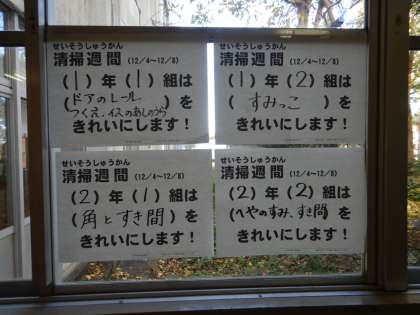 せいそうしゅうかん
清掃週間 (12/4〜12/8)
(1)年(1)組は
(ドアのレール
つくえ、イスのあしのうら)を
きれいにします!
せいそうしゅうかん
清掃週間 (12/4〜12/8)
(1)年(2)組は
(すみっこ)を
きれいにします!
せいそうしゅうかん
清掃週間 (12/4〜12/8)
(2)年(1)組は
(角とすき間)を
きれいにします!
せいそうしゅうかん
清掃週間 (12/4〜12/8)
(2)年(2)組は
(へやのすみ、すき間)を
きれいにします!